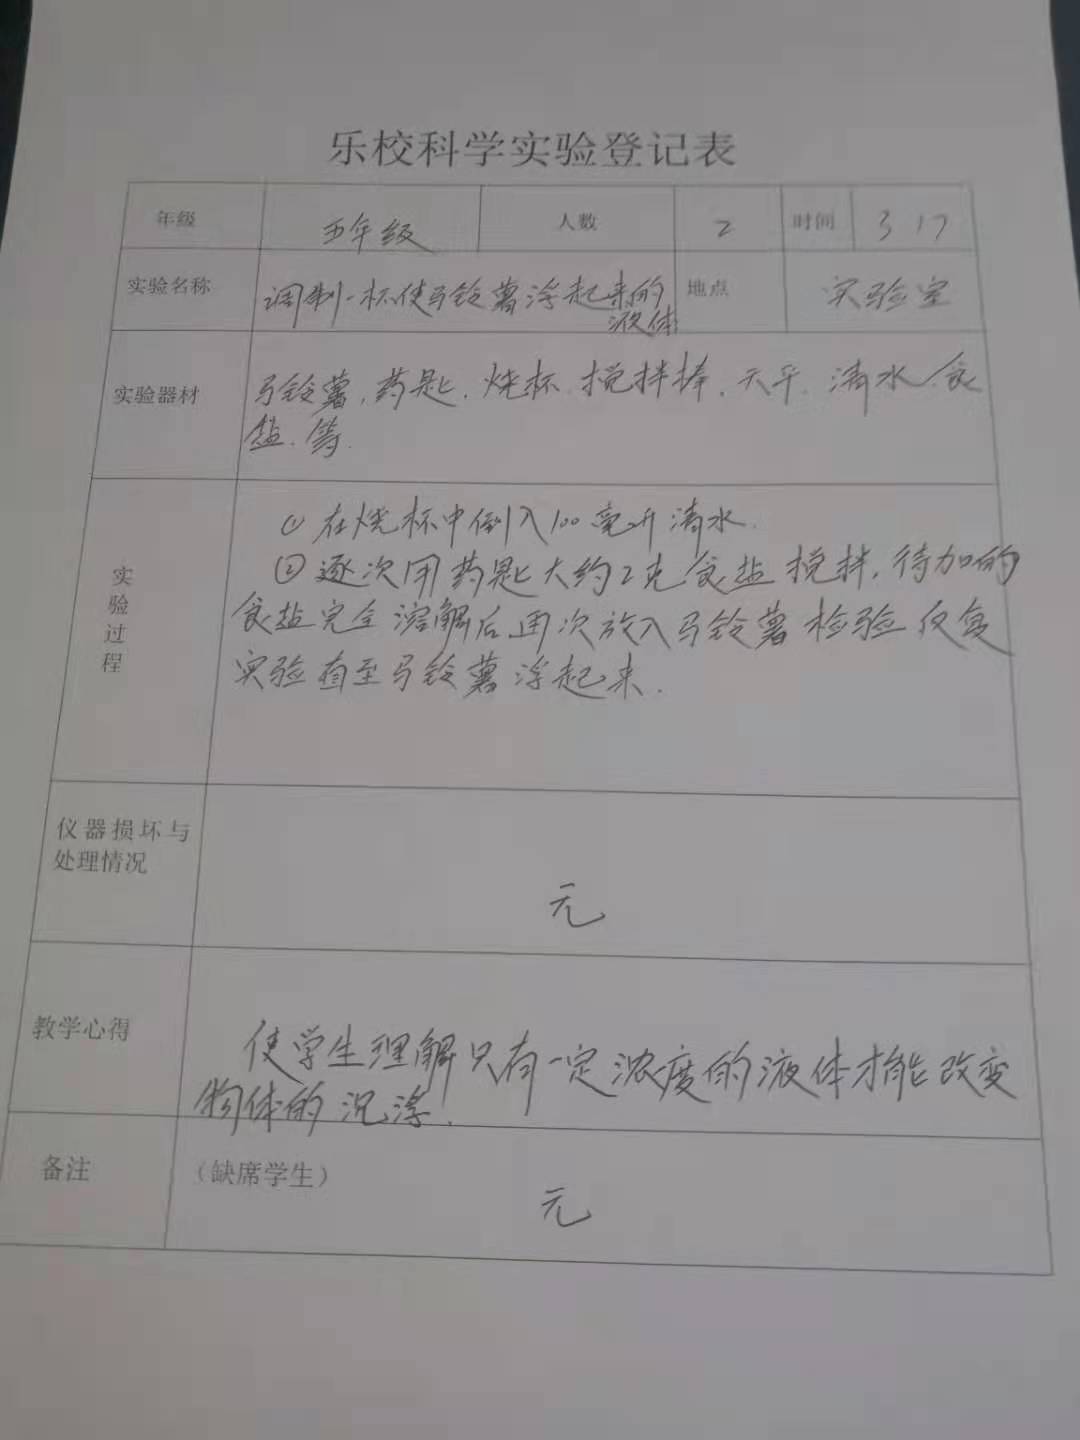 乐校科学实验登记表
年级 五年级 人数 2 时间 3 17
实验名称 调制一杯使马铃薯浮起来的 地点 实验室
液体
实验器材 马铃薯.药匙.烧杯.搅拌棒.天平.清水.食
盐.等.
实验过程
① 在烧杯中倒入100毫升清水.
② 逐次用药匙大约2克食盐搅拌,待加的
食盐完全溶解后再次放入马铃薯检验反复
实验直至马铃薯浮起来.
仪器损坏与
处理情况
无
教学心得 使学生理解只有一定浓度的液体才能改变
物体的沉浮.
备注 (缺席学生)
无